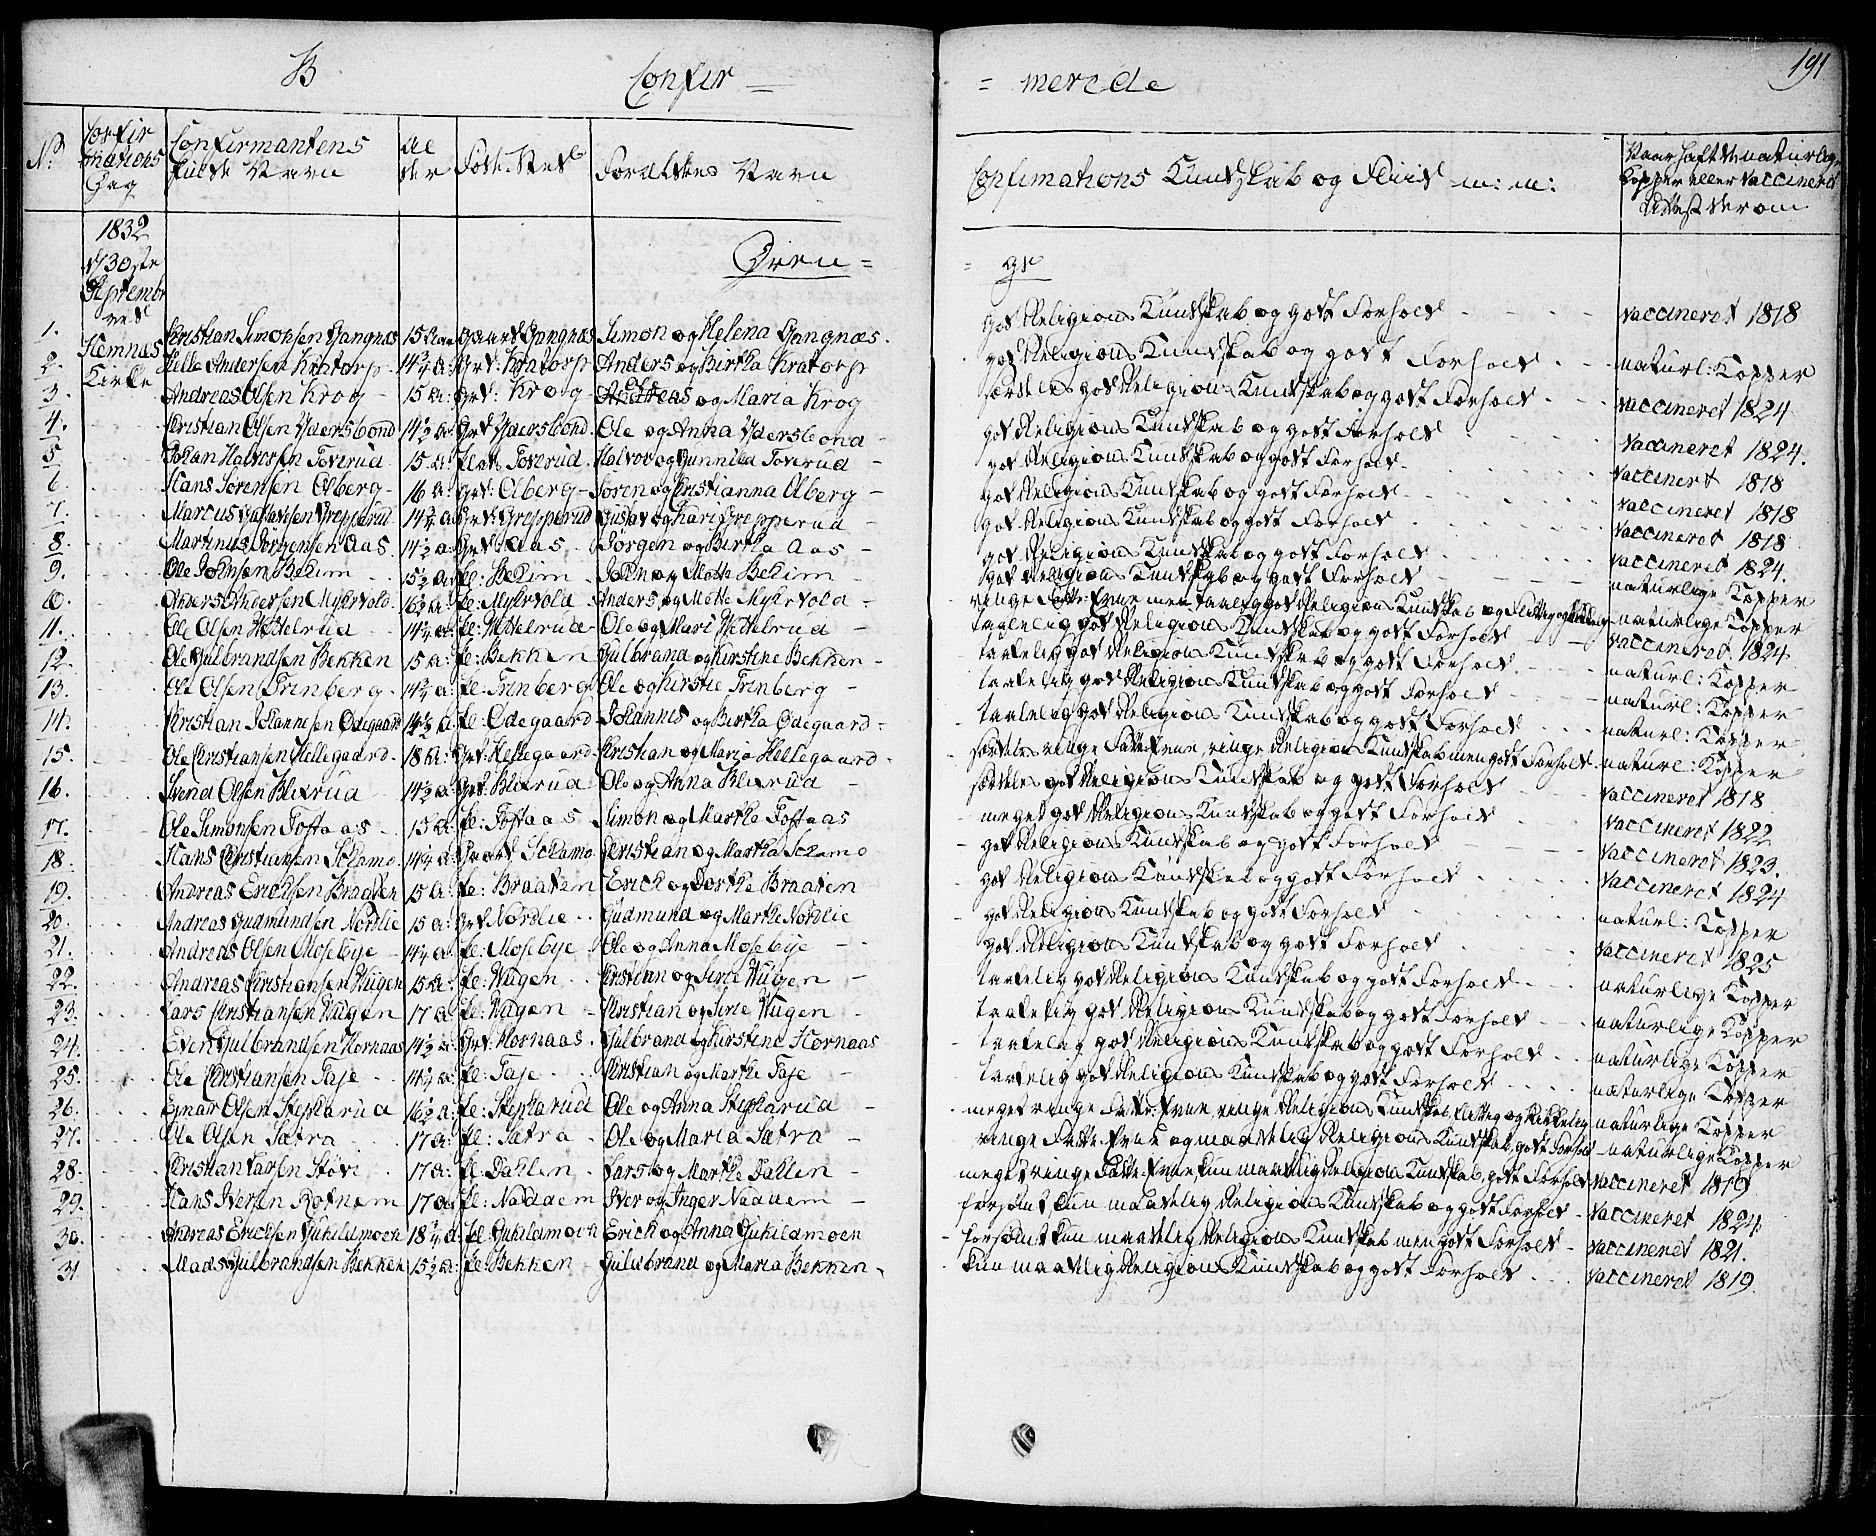 B. Confir =
= merede 191
No Confir Confirmantens Al Föde Sted Forældres Navn Confirmations Kundskab og Fliid m: m: Naar haft de naturlige
mations fulde Navn der Kopper eller Vaccineret
Dag Attest derom
1832
d/ 30ste Dren = = ge
Septemb
red
1. Christian Simonsen Gangnæs 15 Aar Gaard Gangnæs Simon og Helena Gangnæs. god Religions Kundskab og godt Forhold vaccineret 1818
Hemnæs
2. Helle Andersen Kratorp 14½ A: Grd: Kratorp Anders og Birthe Kratorp god Religions Kundskab og godt Forhold naturl: Kopper
Kirke
3. Andreas Olsen Krog 15 A: Grd: Krog Andreas og Maria Krog særdeles god Religions Kundskab og godt Forhold vaccineret 1824
4. Christian Olsen Ydersbond 14½ A: Grd Ydersbond Ole og Anna Ydersbond god Religions Kundskab og godt Forhold vaccineret 1824.
5. Johan Halvorsen Toverud 15 A: Plds Toverud Halvor og Gunnild Toverud god Religions Kundskab og godt Forhold vaccineret 1818
6. Hans Sörensen Aaberg 16 A: Grd: Aaberg Sören og Christianna Aaberg god Religions Kundskab og godt Forhold vaccineret 1818
7. Marcus Gustavsen Grepperud 14¾ A: Grd: Grepperud Gustav og Kari Grepperud god Religions Kundskab og godt Forhold vaccineret 1818
8. Martinus Jörgensen Aas 14½ A: Grd Aas Jörgen og Birthe Aas god Religions Kundskab og godt Forhold vaccineret 1824.
9. Ole Johnsen Bekim 15½ A: Pl: Bekim John og Mette Bekim god Religions Kundskab og godt Forhold naturlige Kopper
10. Anders Andersen Myhrvold 16½ A: Pl: Myhrvold Anders og Mette Myhrvold ringe Fatte-Evne men taalelig god Religions Kundskab og Flittig og skikkelig naturlige Kopper
11. Ole Olsen Wettelrud 14¼ A: Pl: Wettelrud Ole og Mari Wettelrud taalelig god Religions Kundskab og godt Forhold vaccineret 1824
12. Ole Gulbrandsen Bekken 15 A: Pl: Bekken Gulbrand og Kirstine Bekken taalelig god Religions Kundskab og godt Forhold naturl: Kopper
13. Ole Olsen Trinberg 14½ A: Pl: Trinberg Ole og Kirstie Trinberg taalelig god Religions Kundskab og godt Forhold naturl: Kopper
14. Christian Johannesen Ödegaard 14½ A: Pl: Ödegaard Johannes og Birthe Ödegaard taalelig god Religions Kundskab og godt Forhold naturl: Kopper
15. Ole Christiansen Hellegaard 18 A: Grd: Hellegaard Christian og Maria Hellegaard særdeles ringe Fatte-Evne, ringe Religions Kundskab men godt Forhold naturl: Kopper
16. Svend Olsen Blixrud 14½ A: Grd: Blixrud Ole og Anna Blixrud særdeles god Religions Kundskab og godt Forhold vaccineret 1818
17. Ole Simonsen Toftaas 15 A: Pl: Toftaas Simon og Marthe Toftaas meget god Religions Kundskab og godt Forhold vaccineret 1822
18. Hans Christiansen Schamo 14¼ A: Gaard Schamo Christian og Marthe Schamo god Religions Kundskab og godt Forhold vaccineret 1823.
19. Andreas Erichsen Braaten 15 A: Pl: Braaten Erich og Dorthe Braaten god Religions Kundskab og godt Forhold vaccineret 1824
20. Andreas Gudmundsen Nordlie 15 A: Grd Nordlie Gudmund og Marthe Nordlie god Religions Kundskab og godt Forhold naturl: Kopper
21. Andreas Olsen Mosebye 14¼ A: Pl: Mosebye Ole og Anna Mosebye god Religions Kundskab og godt Forhold vaccineret 1825
22. Andreas Christiansen Hugen 15 A: Pl: Hugen Christian og Sirie Hugen taalelig god Religions Kundskab og godt Forhold naturlige Kopper
23. Lars Christiansen Hugen 17 A: Pl: Hugen Christian og Sirie Hugen taalelig god Religions Kundskab og godt Forhold naturlige Kopper
24. Even Gulbrandsen Hornaas 14½ A: Grd: Hornaas Gulbrand og Kirstine Hornaas taalelig god Religions Kundskab og godt Forhold naturlige Kopper
25. Ole Christiansen Taje 14¼ A: Pl: Taje Christian og Marthe Taje taalelig god Religions Kundskab og godt Forhold naturlige Kopper
26. Ejnar Olsen Stepharud 16½ A: Pl: Stepharud Ole og Anna Stepharud meget ringe Fatte-Evne, ringe Religions Kundskab, flittig og skikkelig naturlige Kopper
27. Ole Olsen Sætra 17 A: Pl: Sætra Ole og Maria Sætra ringe Fatte-Evne og maadelig Religions Kundskab, godt Forhold naturlige Kopper
28. Christian Larsen Stövi 17 A: Pl: Dahlen Lars og Marthe Dahlen meget ringe Fatte-Evne, kun maadelig Religions Kundskab, godt Forhold vaccineret 1819
29. Hans Iversen Rotnem 17 A: Pl: Naddem Iver og Inger Naddem forsömt, kun maadelig Religions Kundskab og godt Forhold vaccineret 1824.
30. Andreas Erichsen Gukildmoen 18¼ A: Pl Gukildmoen Erich og Anna Gukildmoen forsömt kun maadelig Religions Kundskab men godt Forhold vaccineret 1821.
31 Mads Gulbrandsen Bekken 15½ A: Pl: Bekken Gulbrand og Maria Bekken kun maadelig Religions Kundskab og godt Forhold vaccineret 1819.